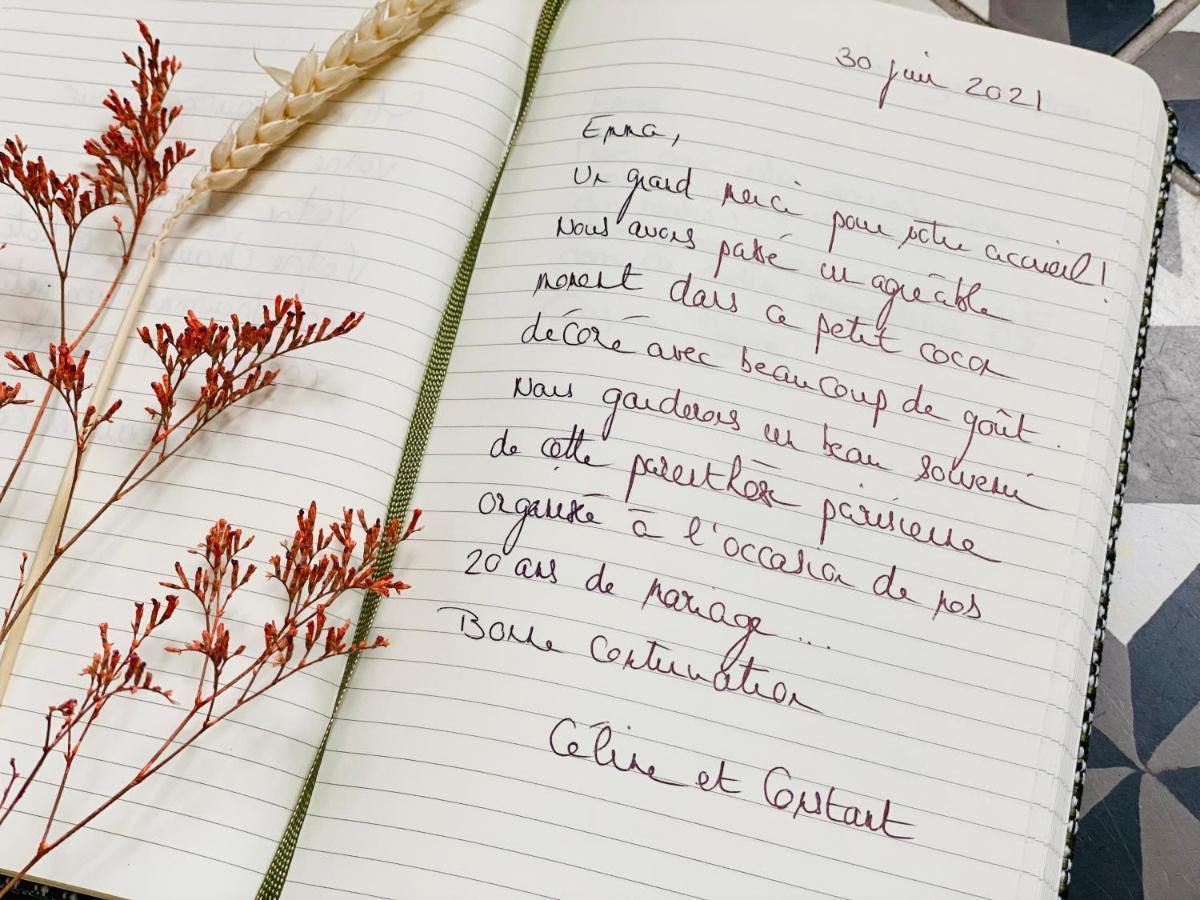 30 juin 2021
Emma,
Un grand merci pour votre accueil !
Nous avons passé un agréable
moment dans ce petit cocon
décoré avec beaucoup de goût.
Nous garderons un beau souvenir
de cette parenthèse parisienne
organisée à l'occasion de nos
20 ans de mariage...
Bonne continuation
Céline et Constant